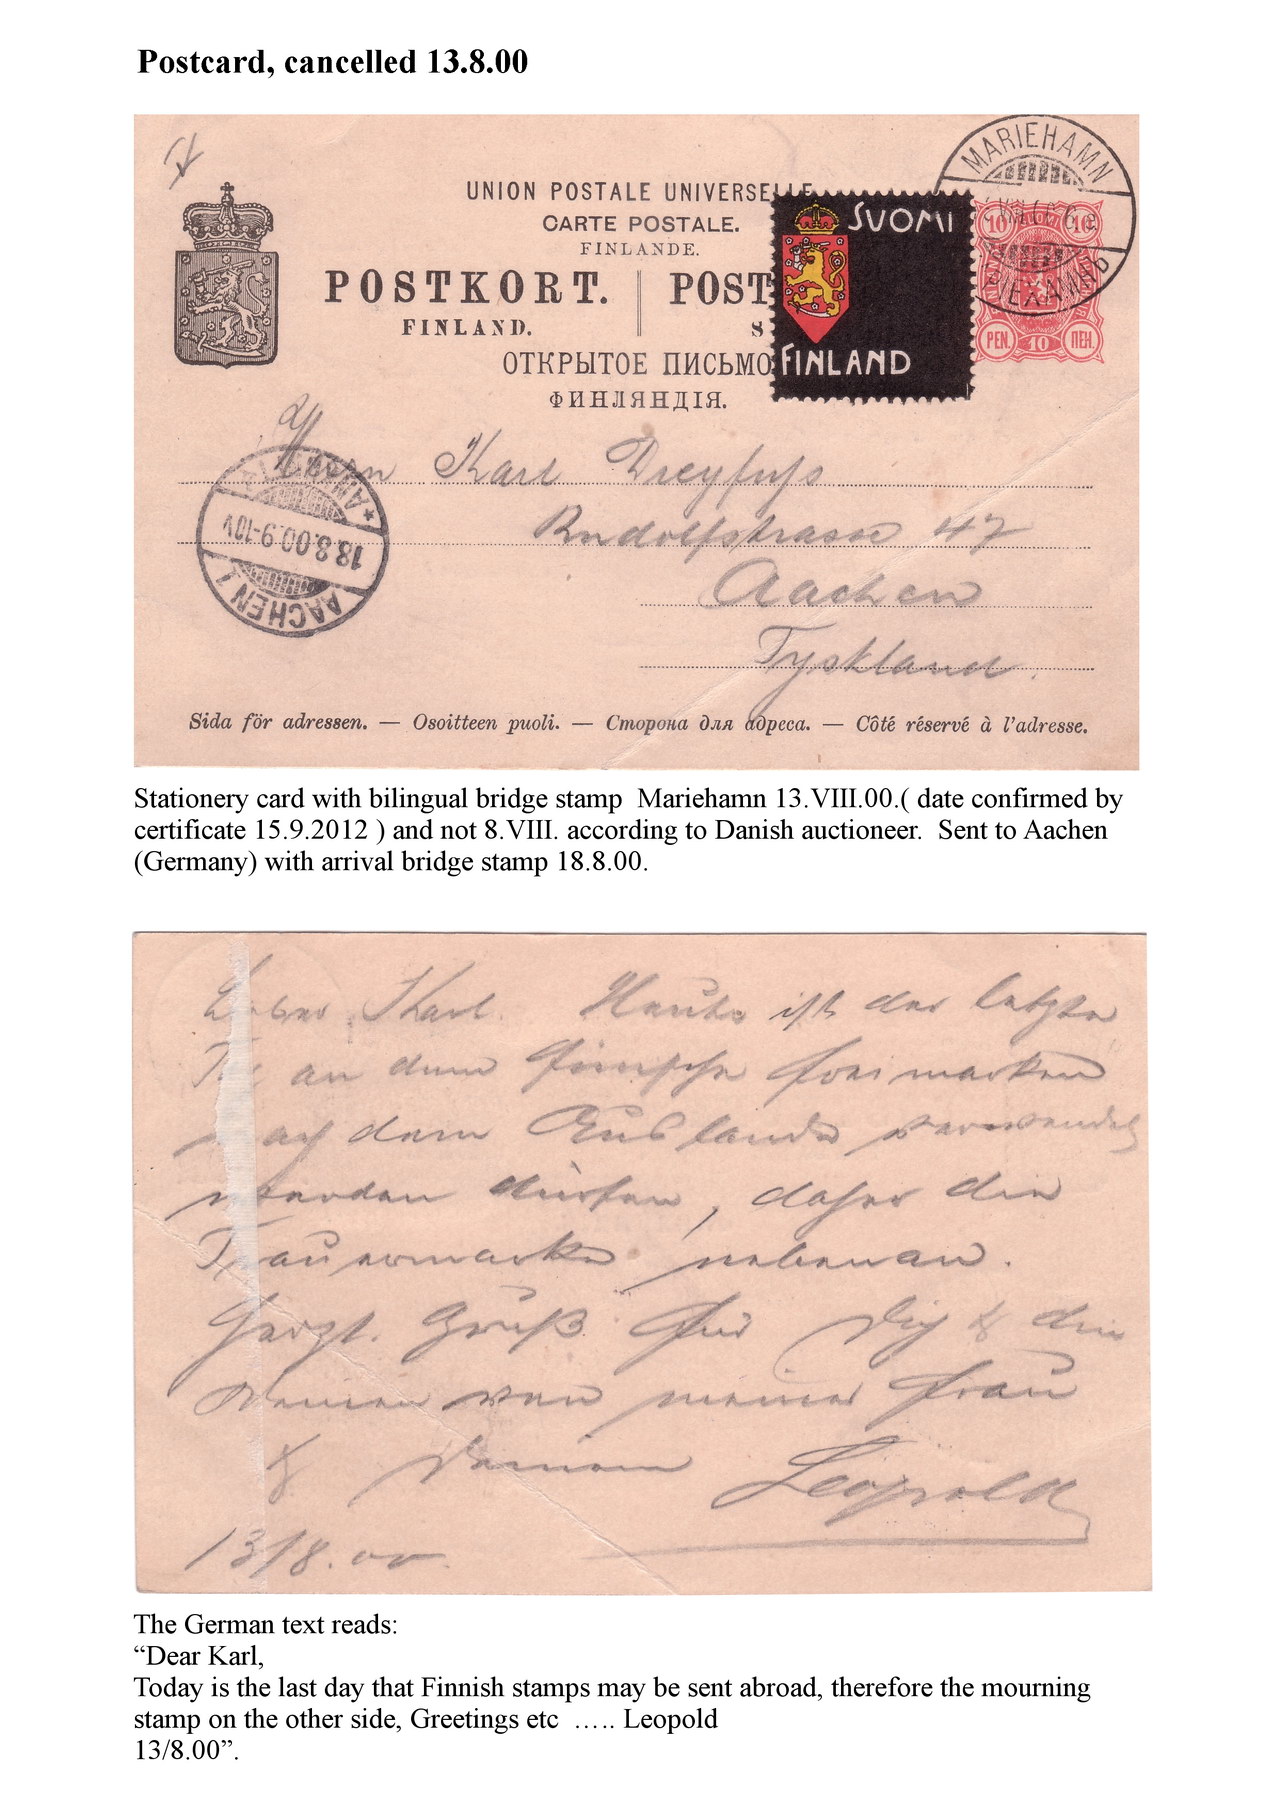 Postcard, cancelled 13.8.00
MARIEHAMN
UNION POSTALE UNIVERSELLE
CARTE POSTALE.
FINLANDE.
POSTKORT. POST
FINLAND. S
ОТКРЫТОЕ ПИСЬМО
ФИНЛЯНДІЯ.
SUOMI
FINLAND
10 SUOMI 10
PEN. 10 ПЕН.
Herrn Karl Dreyfuss
Rudolfstrasse 47
Aachen
Tyskland.
AACHEN 1
18.8.00.9-10V
Sida för adressen. — Osoitteen puoli. — Сторона для адреса. — Côté réservé à l'adresse.
Stationery card with bilingual bridge stamp Mariehamn 13.VIII.00.( date confirmed by
certificate 15.9.2012 ) and not 8.VIII. according to Danish auctioneer. Sent to Aachen
(Germany) with arrival bridge stamp 18.8.00.
Lieber Karl. Heute ist der letzte
Tag an dem Finnische Freimarken
nach dem Auslande verwendet
werden dürfen, daher die
Trauermarke nebenan.
Herzl. Gruß für Dich & die
Deinen von meiner Frau
& Deinem Leopold
13/8.00.
The German text reads:
“Dear Karl,
Today is the last day that Finnish stamps may be sent abroad, therefore the mourning
stamp on the other side, Greetings etc ….. Leopold
13/8.00”.